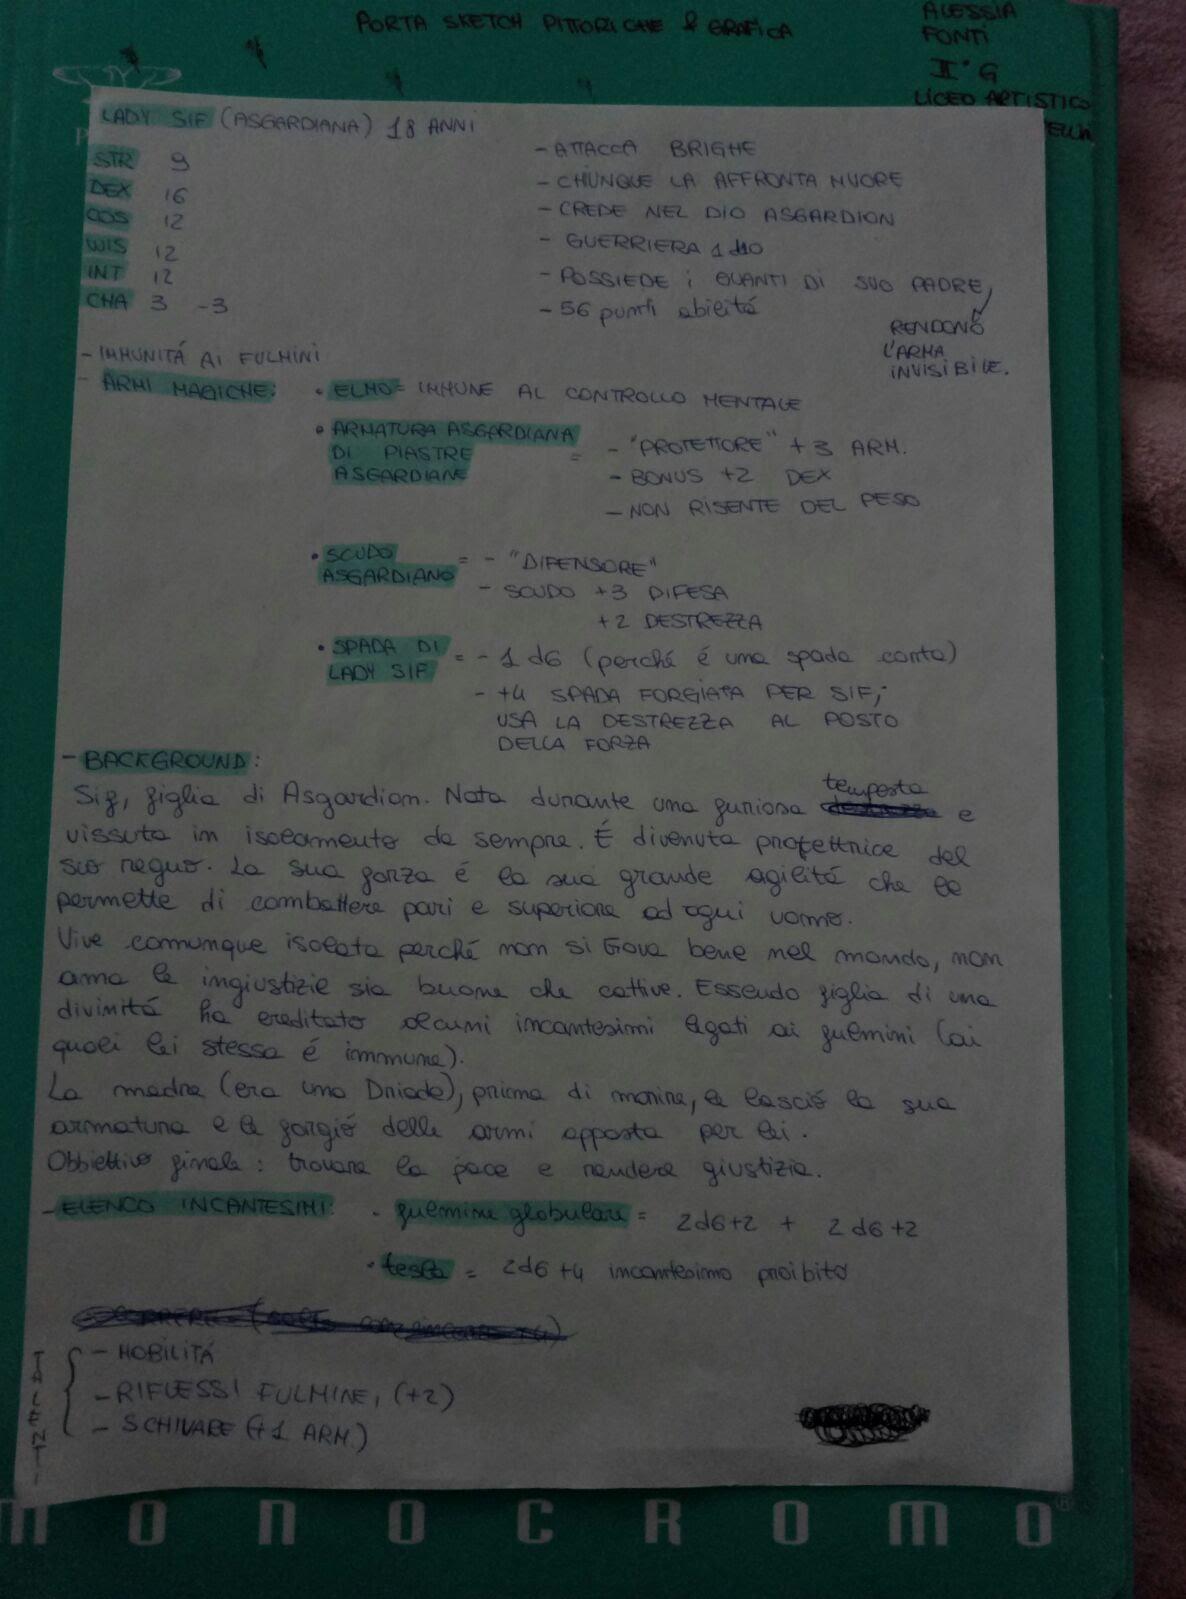 PORTA SKETCH PITTORICHE & GRAFICA
ALESSIA
FONTI
II° G
LICEO ARTISTICO
LADY SIF (ASGARDIANA) 18 ANNI
STR 9
DEX 16
COS 12
WIS 12
INT 12
CHA 3 -3
- ATTACCA BRIGHE
- CHIUNQUE LA AFFRONTA MUORE
- CREDE NEL DIO ASGARDION
- GUERRIERA 1d10
- POSSIEDE i GUANTI DI SUO PADRE
- 56 punti abilitá
RENDONO
L'ARMA
INVISIBILE.
- IMMUNITÁ AI FULMINI
- ARMI MAGICHE:
• ELMO = IMMUNE AL CONTROLLO MENTALE
• ARMATURA ASGARDIANA
DI PIASTRE
ASGARDIANE
= - "PROTETTORE" +3 ARM.
- BONUS +2 DEX
- NON RISENTE DEL PESO
• SCUDO
ASGARDIANO
= - "DIFENSORE"
- SCUDO +3 DIFESA
+2 DESTREZZA
• SPADA DI
LADY SIF
= - 1d6 (perché é una spada corta)
- +4 SPADA FORGIATA PER SIF,
USA LA DESTREZZA AL POSTO
DELLA FORZA
- BACKGROUND:
Sif, figlia di Asgardion. Nata durante una furiosa tempesta e
vissuta in isolamento da sempre. É divenuta protettrice del
suo regno. La sua forza é la sua grande agilitá che le
permette di combattere pari e superiore ad ogni uomo.
Vive comunque isolata perché non si trova bene nel mondo, non
ama le ingiustizie sia buone che cattive. Essendo figlia di una
divinitá ha ereditato alcuni incantesimi legati ai fulmini (ai
quali lei stessa é immune).
La madre (era una Driade), prima di morire, le lasció la sua
armatura e le forgió delle armi apposta per lei.
Obbiettivo finale: trovare la pace e rendere giustizia.
- ELENCO INCANTESIMI:
• fulmine globulare = 2d6+2 + 2d6+2
• tesla = 2d6+4 incantesimo proibito
TALENTI
- MOBILITÁ
- RIFLESSI FULMINE, (+2)
- SCHIVARE (+1 ARM.)
MONOCROMO®